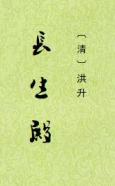 〔清〕洪升
长生殿